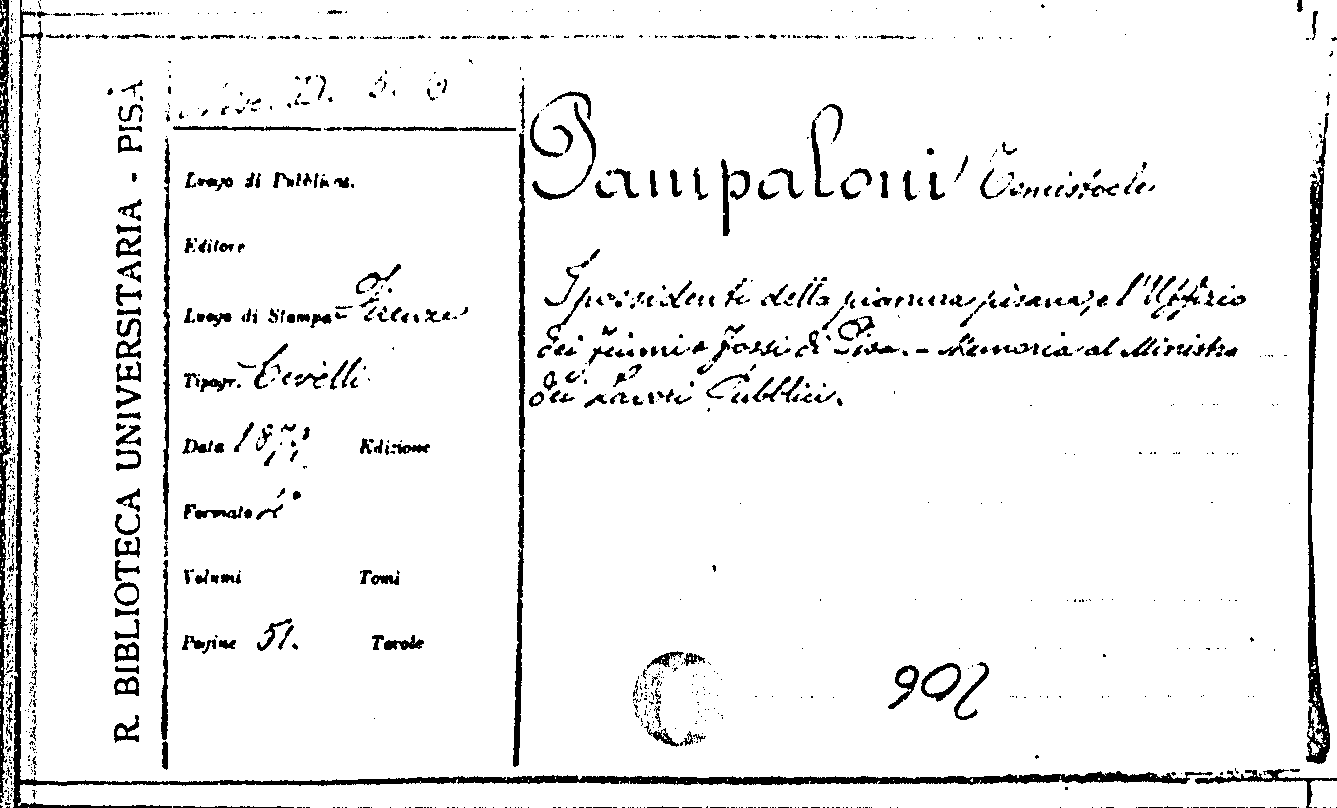 R. BIBLIOTECA UNIVERSITARIA - PISA
Misc. 6
Luogo di Pubblicaz.
Editore
Luogo di Stampa Firenze
Tipogr. Civelli
Data 187 Edizione
Formato
Volumi Tomi
Pagine 51. Tavole
Pampaloni Temistocle
I possidenti della pianura pisana, e l'Uffizio
dei fiumi e fossi di Pisa. - Memoria al Ministro
dei Lavori Pubblici.
902